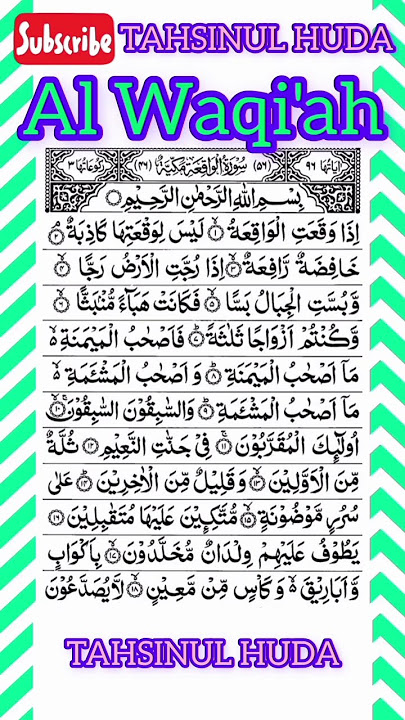 Subscribe TAHSINUL HUDA
Al Waqi'ah
اٰیَاتُهَا ٩٦ (٥٦) سُوْرَةُ الْوَاقِعَةِ مَكِّيَّةٌ (٤٦) رُكُوْعَاتُهَا ٣
بِسْمِ اللّٰهِ الرَّحْمٰنِ الرَّحِيْمِ
اِذَا وَقَعَتِ الْوَاقِعَةُ ۙ﴿١﴾ لَيْسَ لِوَقْعَتِهَا كَاذِبَةٌ ۘ﴿٢﴾
خَافِضَةٌ رَّافِعَةٌ ۙ﴿٣﴾ اِذَا رُجَّتِ الْاَرْضُ رَجًّا ۙ﴿٤﴾
وَّبُسَّتِ الْجِبَالُ بَسًّا ۙ﴿٥﴾ فَكَانَتْ هَبَآءً مُّنْۢبَثًّا ۙ﴿٦﴾
وَّكُنْتُمْ اَزْوَاجًا ثَلٰثَةً ؕ﴿٧﴾ فَاَصْحٰبُ الْمَيْمَنَةِ ۙ۬
مَاۤ اَصْحٰبُ الْمَيْمَنَةِ ؕ﴿٨﴾ وَ اَصْحٰبُ الْمَشْـَٔمَةِ ۙ۬
مَاۤ اَصْحٰبُ الْمَشْـَٔمَةِ ؕ﴿٩﴾ وَالسّٰبِقُوْنَ السّٰبِقُوْنَ ۚۙ﴿١٠﴾
اُولٰٓئِكَ الْمُقَرَّبُوْنَ ۚ﴿١١﴾ فِيْ جَنّٰتِ النَّعِيْمِ ﴿١٢﴾ ثُلَّةٌ
مِّنَ الْاَوَّلِيْنَ ۙ﴿١٣﴾ وَ قَلِيْلٌ مِّنَ الْاٰخِرِيْنَ ؕ﴿١٤﴾ عَلٰى
سُرُرٍ مَّوْضُوْنَةٍ ۙ﴿١٥﴾ مُّتَّكِـِٕيْنَ عَلَيْهَا مُتَقٰبِلِيْنَ ﴿١٦﴾
يَطُوْفُ عَلَيْهِمْ وِلْدَانٌ مُّخَلَّدُوْنَ ۙ﴿١٧﴾ بِاَكْوَابٍ
وَّ اَبَارِيْقَ ۙ۬ وَ كَاْسٍ مِّنْ مَّعِيْنٍ ۙ﴿١٨﴾ لَّا يُصَدَّعُوْنَ
TAHSINUL HUDA